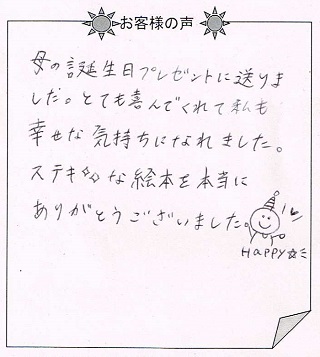 お客様の声
母の誕生日プレゼントに送りま
した。とても喜んでくれて私も
幸せな気持ちになれました。
ステキ✧✧な絵本を本当に
ありがとうございました。
HAPPY☆ミ